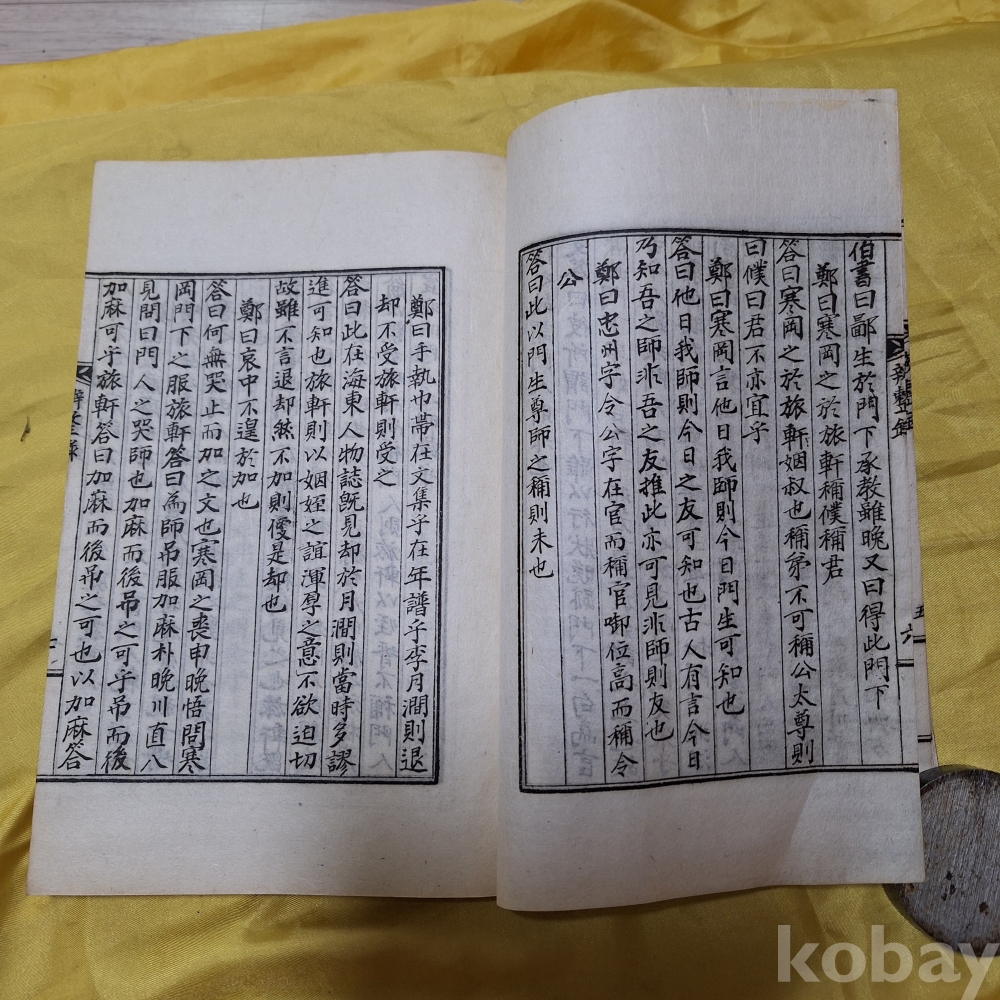 伯書曰鄙生於門下承教雖晚又曰得此門下
鄭曰寒岡之於旅軒稱僕稱君
答曰寒岡之於旅軒姻叔也稱弟不可稱公太尊則
曰僕曰君不亦宜乎
鄭曰寒岡言他日我師則今日門生可知也
答曰他日我師則今日之友可知也古人有言今日
乃知吾之師非吾之友推此亦可見非師則友也
鄭曰忠州字令公字在官而稱官啣位高而稱令
公
答曰此以門生尊師之稱則未也
五
六
鄭曰手執巾帶在文集乎在年譜乎李月澗則退
却不受旅軒則受之
答曰此在海東人物誌旣見却於月澗則當時多謬
進可知也旅軒則以姻姪之誼渾厚之意不欲迫切
故雖不言退却然不加則優是却也
鄭曰哀中不遑於加也
答曰何無哭止而加之文也寒岡之喪申晚悟問寒
岡門下之服旅軒答曰為師吊服加麻朴晚川直八
見問曰門人之哭師也加麻而後吊之可乎吊而後
加麻可乎旅軒答曰加麻而後吊之可也以加麻答
kobay